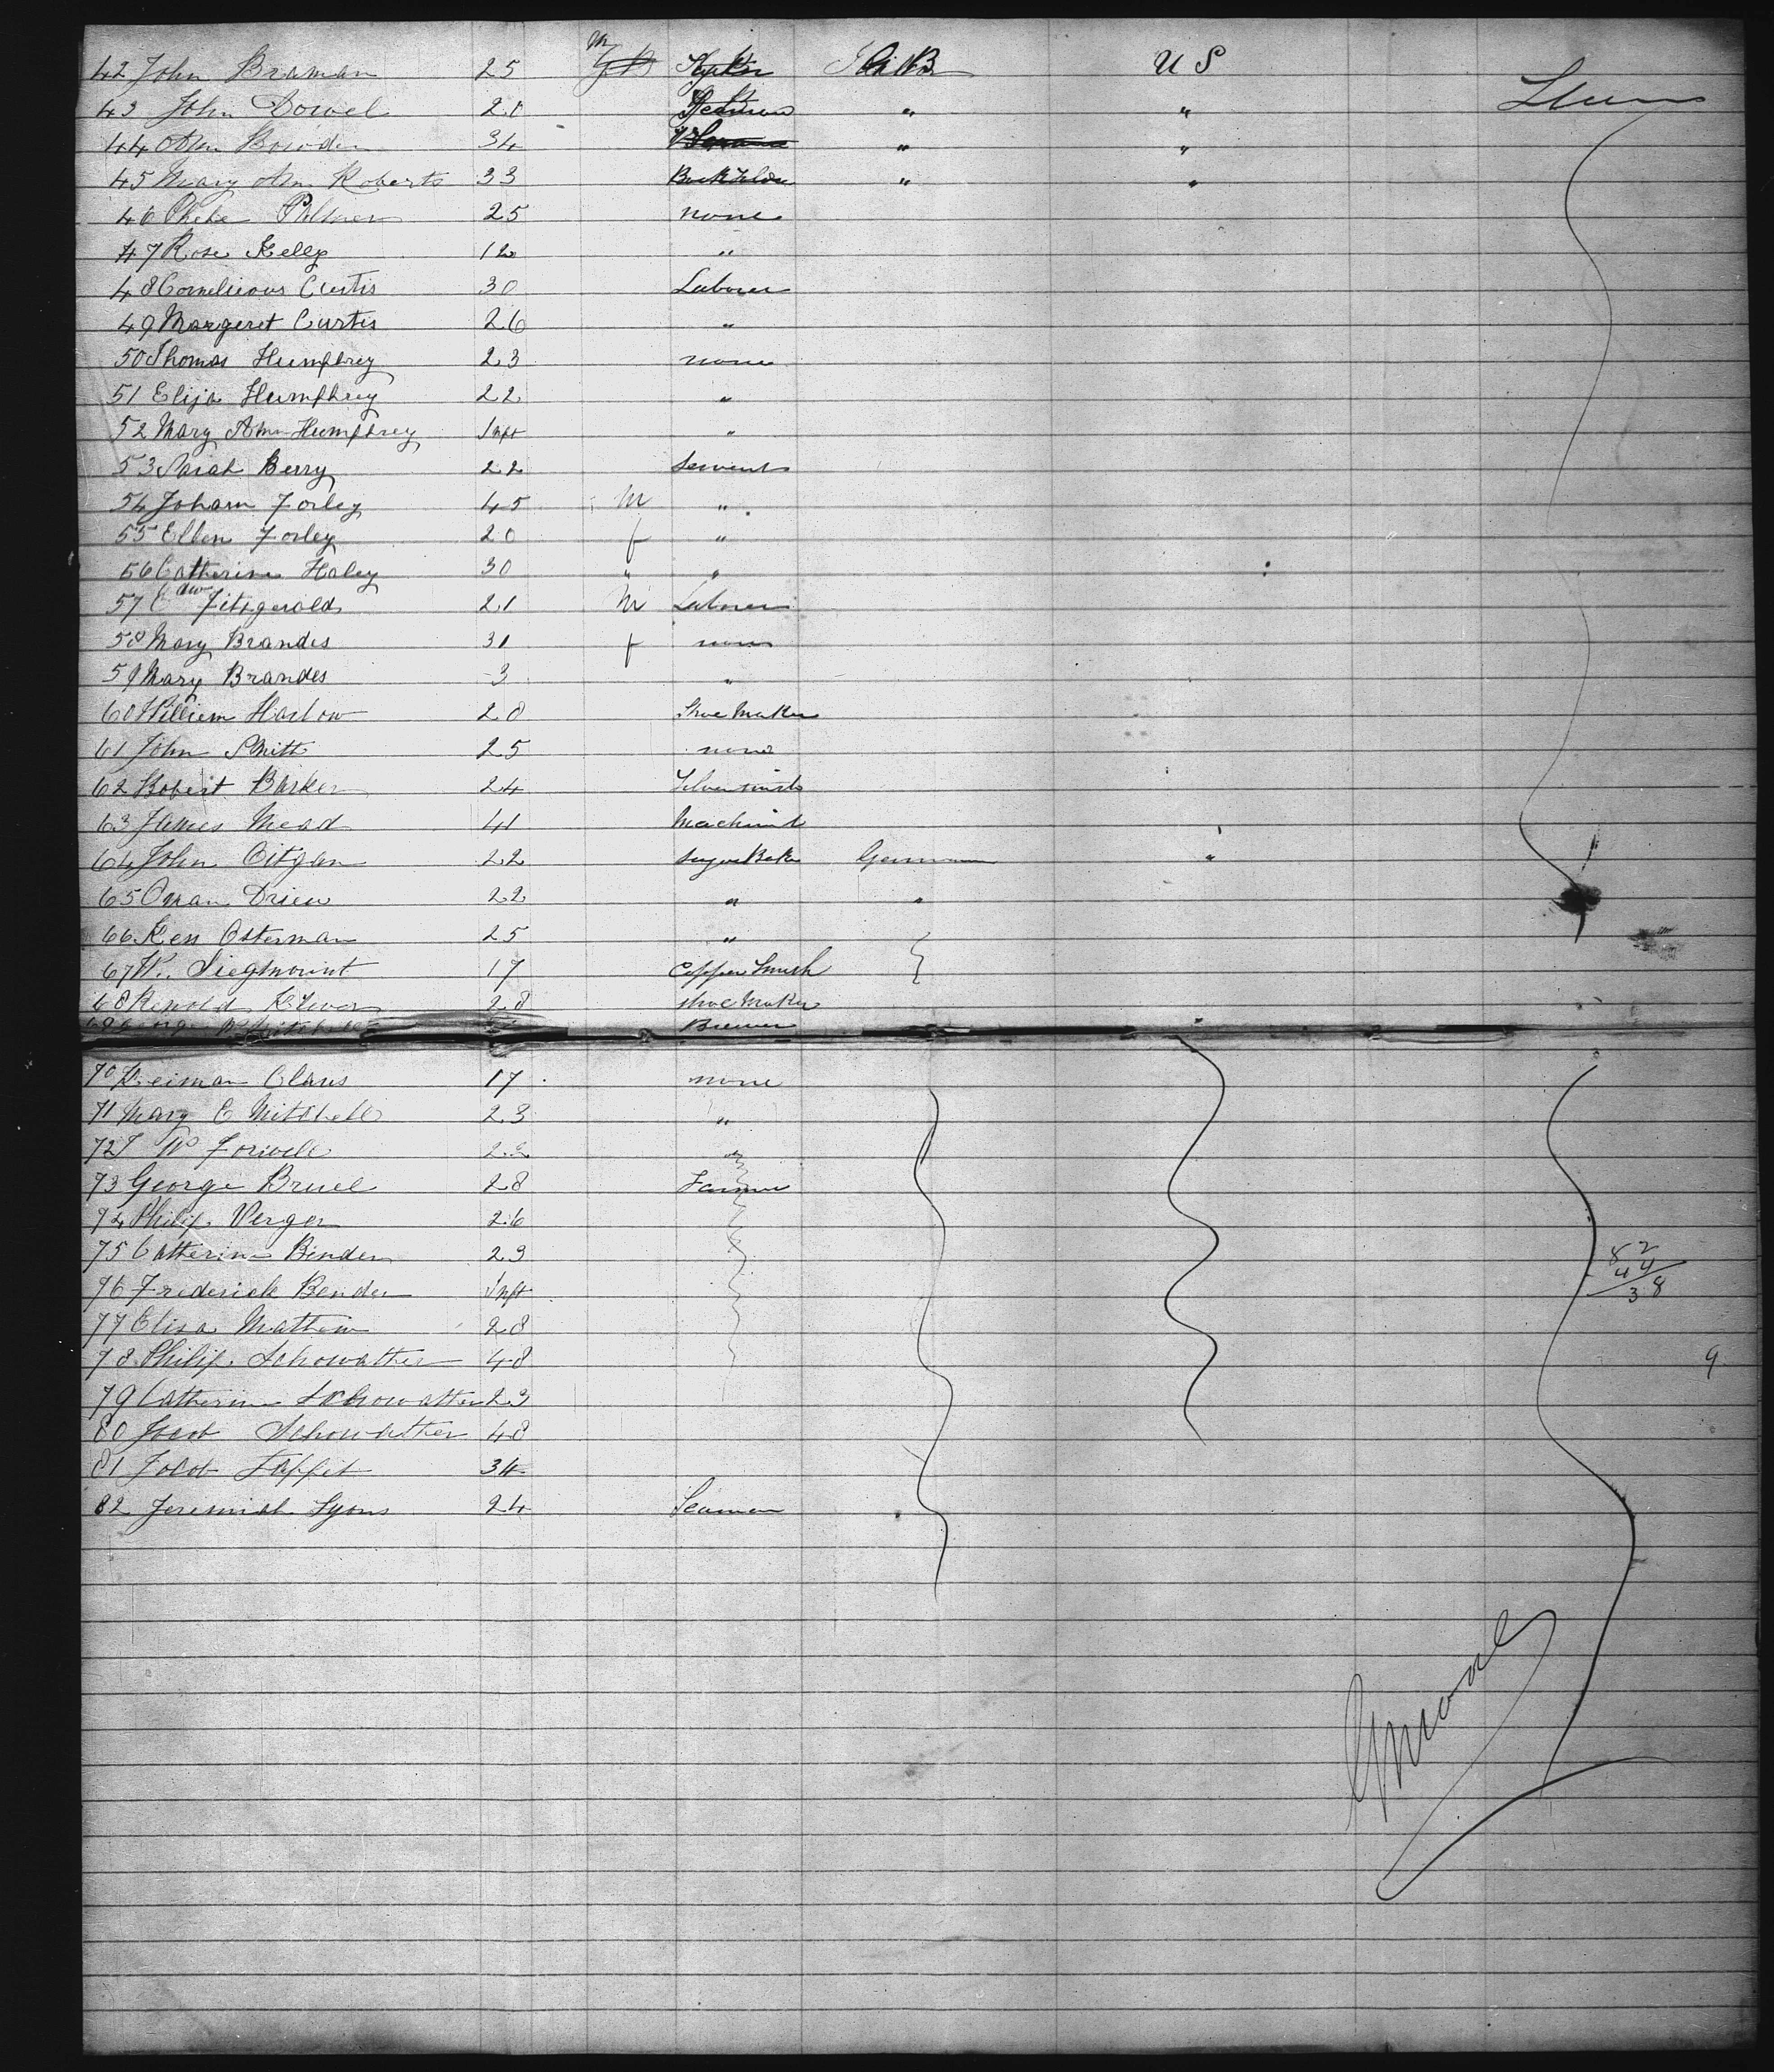 42 John Braman 25 M Gt B U S
43 John Dowel 20 " " Steam
44 Ann Bowden 34 " "
45 Mary Ann Roberts 33 " "
46 Phebe Palmer 25 none
47 Rose Kelly 12 "
48 Cornelious Curtis 30 Laborer
49 Margeret Curtis 26 "
50 Thomas Humphrey 23 none
51 Elija Humphrey 22 "
52 Mary Ann Humphrey Inft "
53 Sarah Berry 22 Servant
54 Johann Forley 45 M "
55 Ellen Forley 20 f "
56 Catherine Haley 30 " "
57 Edw Fitzgerold 21 M Laborer
58 Mary Brandes 31 f none
59 Mary Brandes 3 "
60 William Harlow 28 Shoe Maker
61 John Smitt 25 none
62 Robert Barker 24 Silversmith
63 James Mead 41 Machinist
64 John Citgen 22 Sugar Baker German "
65 Oman Driew 22 " "
66 Ken Osterman 25 "
67 W. Siegmount 17 Copper Smith
68 Renold 28 Shoe Maker
69 George Brewer
70 Reiman Claus 17 none
71 Mary E Mitchell 23 "
72 J W Forwell "
73 George Bruel 28 Farmer
74 Philip Verger 26
75 Catherine Binder 23
76 Frederick Bender Inft
82
44
38
77 Elisa Mathew 28
78 Philip Schowather 48 9
79 Catherine Schowather 23
80 Jacob Schowather 48
81 Jacob Tappit 34
82 Jeremiah Lyons 24 Seaman